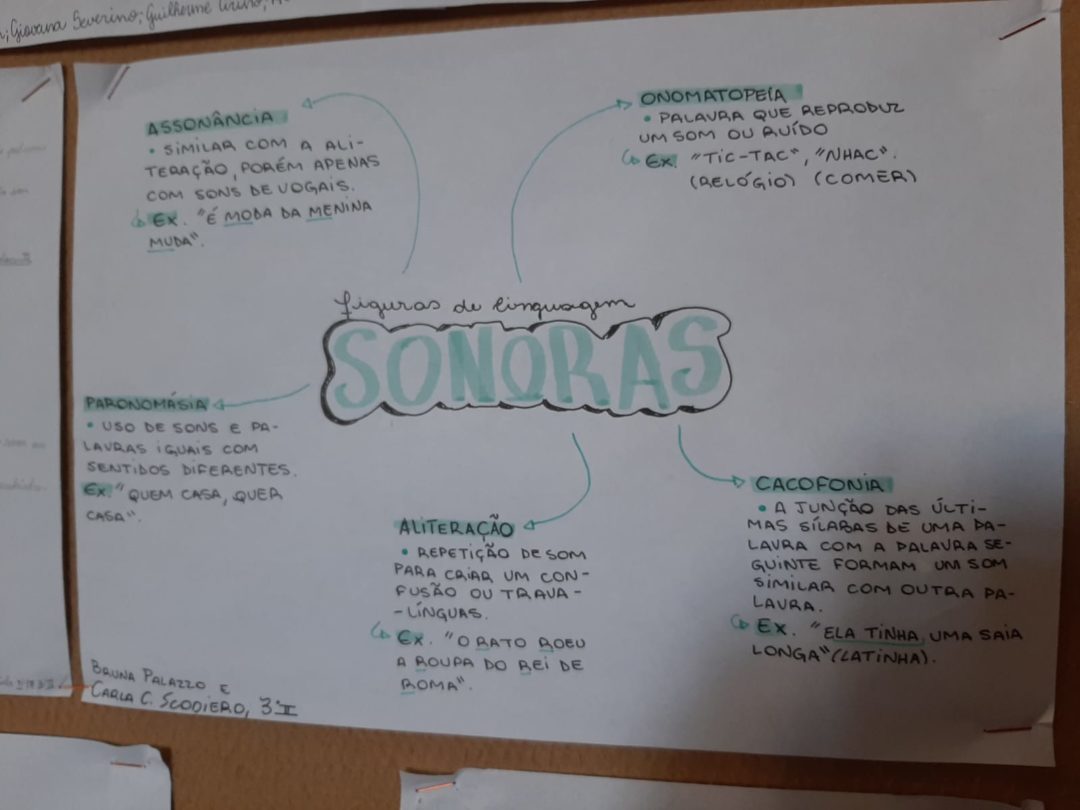 Giovana Severino; Guilherme
ASSONÂNCIA
• SIMILAR COM A ALI-
TERAÇÃO, PORÉM APENAS
COM SONS DE VOGAIS.
Ex. "É MODA DA MENINA
MUDA".
ONOMATOPEIA
• PALAVRA QUE REPRODUZ
UM SOM OU RUÍDO
Ex. "TIC-TAC", "NHAC".
(RELÓGIO) (COMER)
figuras de linguagem
SONORAS
PARONOMÁSIA
• USO DE SONS E PA-
LAVRAS IGUAIS COM
SENTIDOS DIFERENTES.
Ex. "QUEM CASA, QUER
CASA".
ALITERAÇÃO
• REPETIÇÃO DE SOM
PARA CRIAR UM CON-
FUSÃO OU TRAVA-
-LÍNGUAS.
Ex. "O RATO ROEU
A ROUPA DO REI DE
ROMA".
CACOFONIA
• A JUNÇÃO DAS ÚLTI-
MAS SÍLABAS DE UMA PA-
LAVRA COM A PALAVRA SE-
GUINTE FORMAM UM SOM
SIMILAR COM OUTRA PA-
LAVRA.
Ex. "ELA TINHA UMA SAIA
LONGA" (LATINHA).
BRUNA PALAZZO E
CARLA C. SCODIERO, 3ºI